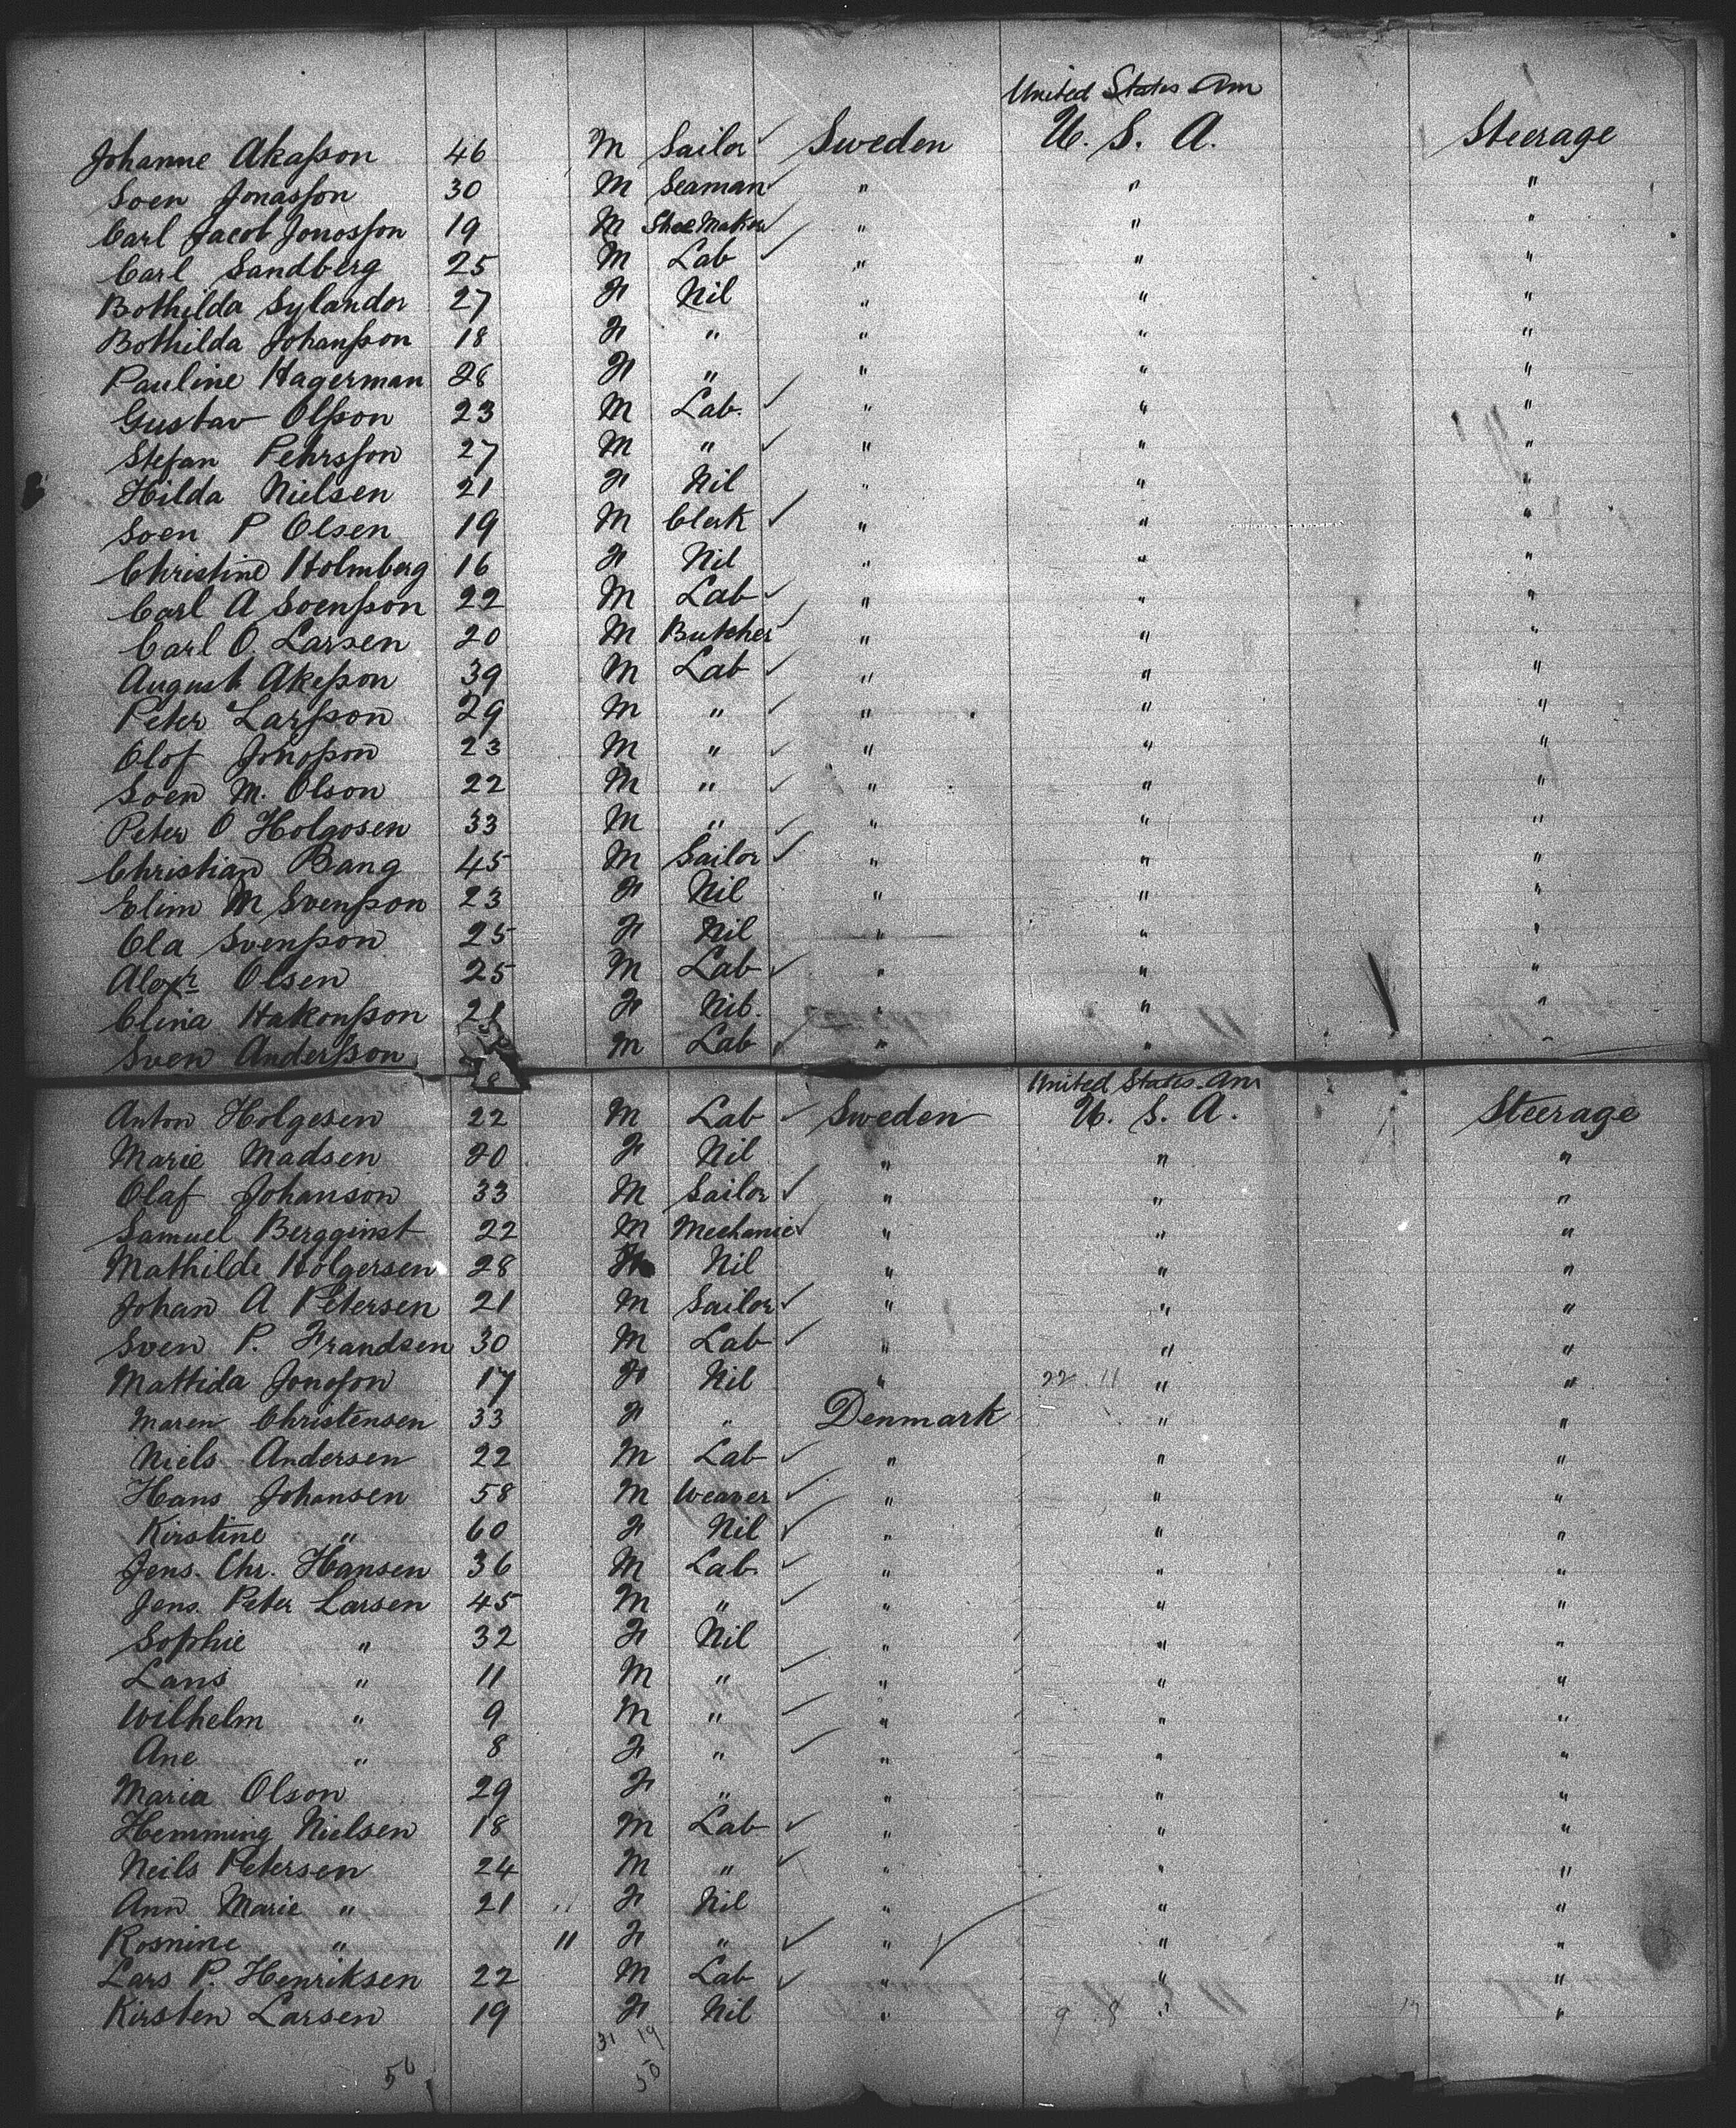 United States Am
Johanne Akaſson 46 M Sailor ✓ Sweden U. S. A. Steerage
Soen Jonasſon 30 M Seaman ✓ " " "
Carl Jacob Jonosſon 19 M ShoeMaker ✓ " " "
Carl Sandberg 25 M Lab ✓ " " "
Bothilda Sylander 27 F Nil " " "
Bothilda Johanſson 18 F " " " "
Pauline Hagerman 28 F " " " "
Gustav Olſson 23 M Lab. ✓ " " "
Stefan Pehrsſon 27 M " ✓ " " "
Hilda Nielsen 21 F Nil " " "
Soen P Olsen 19 M Clerk ✓ " " "
Christine Holmberg 16 F Nil " " "
Carl A Soenſson 22 M Lab ✓ " " "
Carl O. Larsen 20 M Butcher ✓ " " "
August Akeſson 39 M Lab ✓ " " "
Peter Larſson 29 M " ✓ " " "
Olof Jonoſson 23 M " ✓ " " "
Soen M. Olson 22 M " ✓ " " "
Peter O Holgosen 33 M " ✓ " " "
Christian Bang 45 M Sailor ✓ " " "
Elim M Svenſson 23 F Nil " " "
Ola Svenſson 25 F Nil " " "
Alexr Olsen 25 M Lab ✓ " " "
Clina Hakonſson 21 F Nil. " " "
Sven Anderſson M Lab ✓ " " "
United States Am
Anton Holgesen 22 M Lab ✓ Sweden U. S. A. Steerage
Marie Madsen 20 F Nil " " "
Olaf Johanson 33 M Sailor ✓ " " "
Samuel Bergginst 22 M Mechanic ✓ " " "
Mathilde Holgersen 28 F Nil " " "
Johan A Petersen 21 M Sailor ✓ " " "
Sven P. Frandsen 30 M Lab ✓ " " "
Mattida Jonoſson 17 F Nil " 22 . 11 " "
Maren Christensen 33 F " Denmark " "
Niels Andersen 22 M Lab ✓ " " "
Hans Johansen 58 M Weaver ✓ " " "
Kirstine " 60 F Nil ✓ " " "
Jens. Chr. Hansen 36 M Lab. ✓ " " "
Jens. Peter Larsen 45 M " ✓ " " "
Sophie " 32 F Nil " " "
Lans " 11 M " ✓ " " "
Wilhelm " 9 M " ✓ " " "
Ane " 8 F " ✓ " " "
Maria Olson 29 F " " " "
Hemming Nielsen 18 M Lab ✓ " " "
Neils Petersen 24 M " ✓ " " "
Ann Marie " 21 " F Nil " " "
Rosnine " 11 F " ✓ " ✓ " "
Lars P. Henriksen 22 M Lab ✓ " " "
Kirsten Larsen 19 F Nil " 9 . 8 " "
31 19
50 50